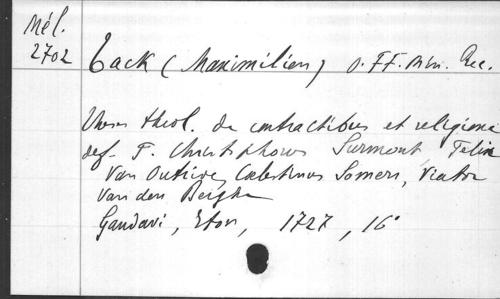 Mél.
2702
Tack (Maximilien) o. FF. Min. Rec.
Theses theol. de contractibus et religione
def. F. Christophorus Surmont Felix
Van Outrive, Cœlestinus Somers, Viator
Van den Berghe
Gandavi, Eton, 1727, 16°